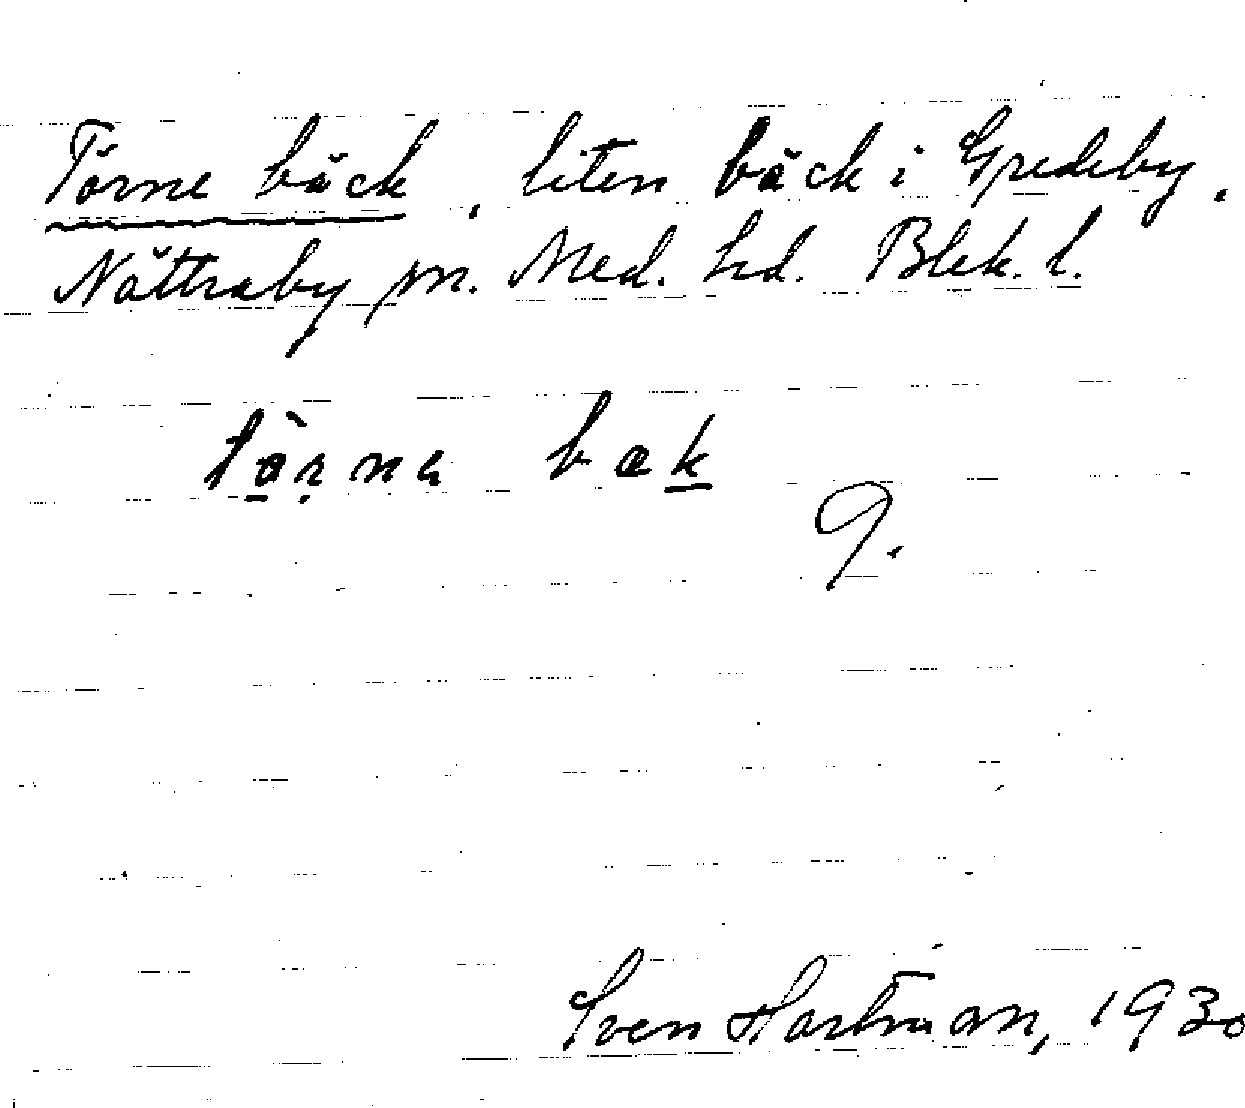 Törne bäck, liten bäck i Gredeby,
Nättraby sn. Med. hd. Blek. l.
bæk
Sven Hartman, 1930